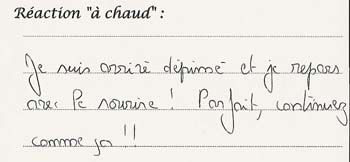 Réaction "à chaud" :
Je suis arrivé déprimé et je repars
avec le sourire ! Parfait, continuez
comme ça !!